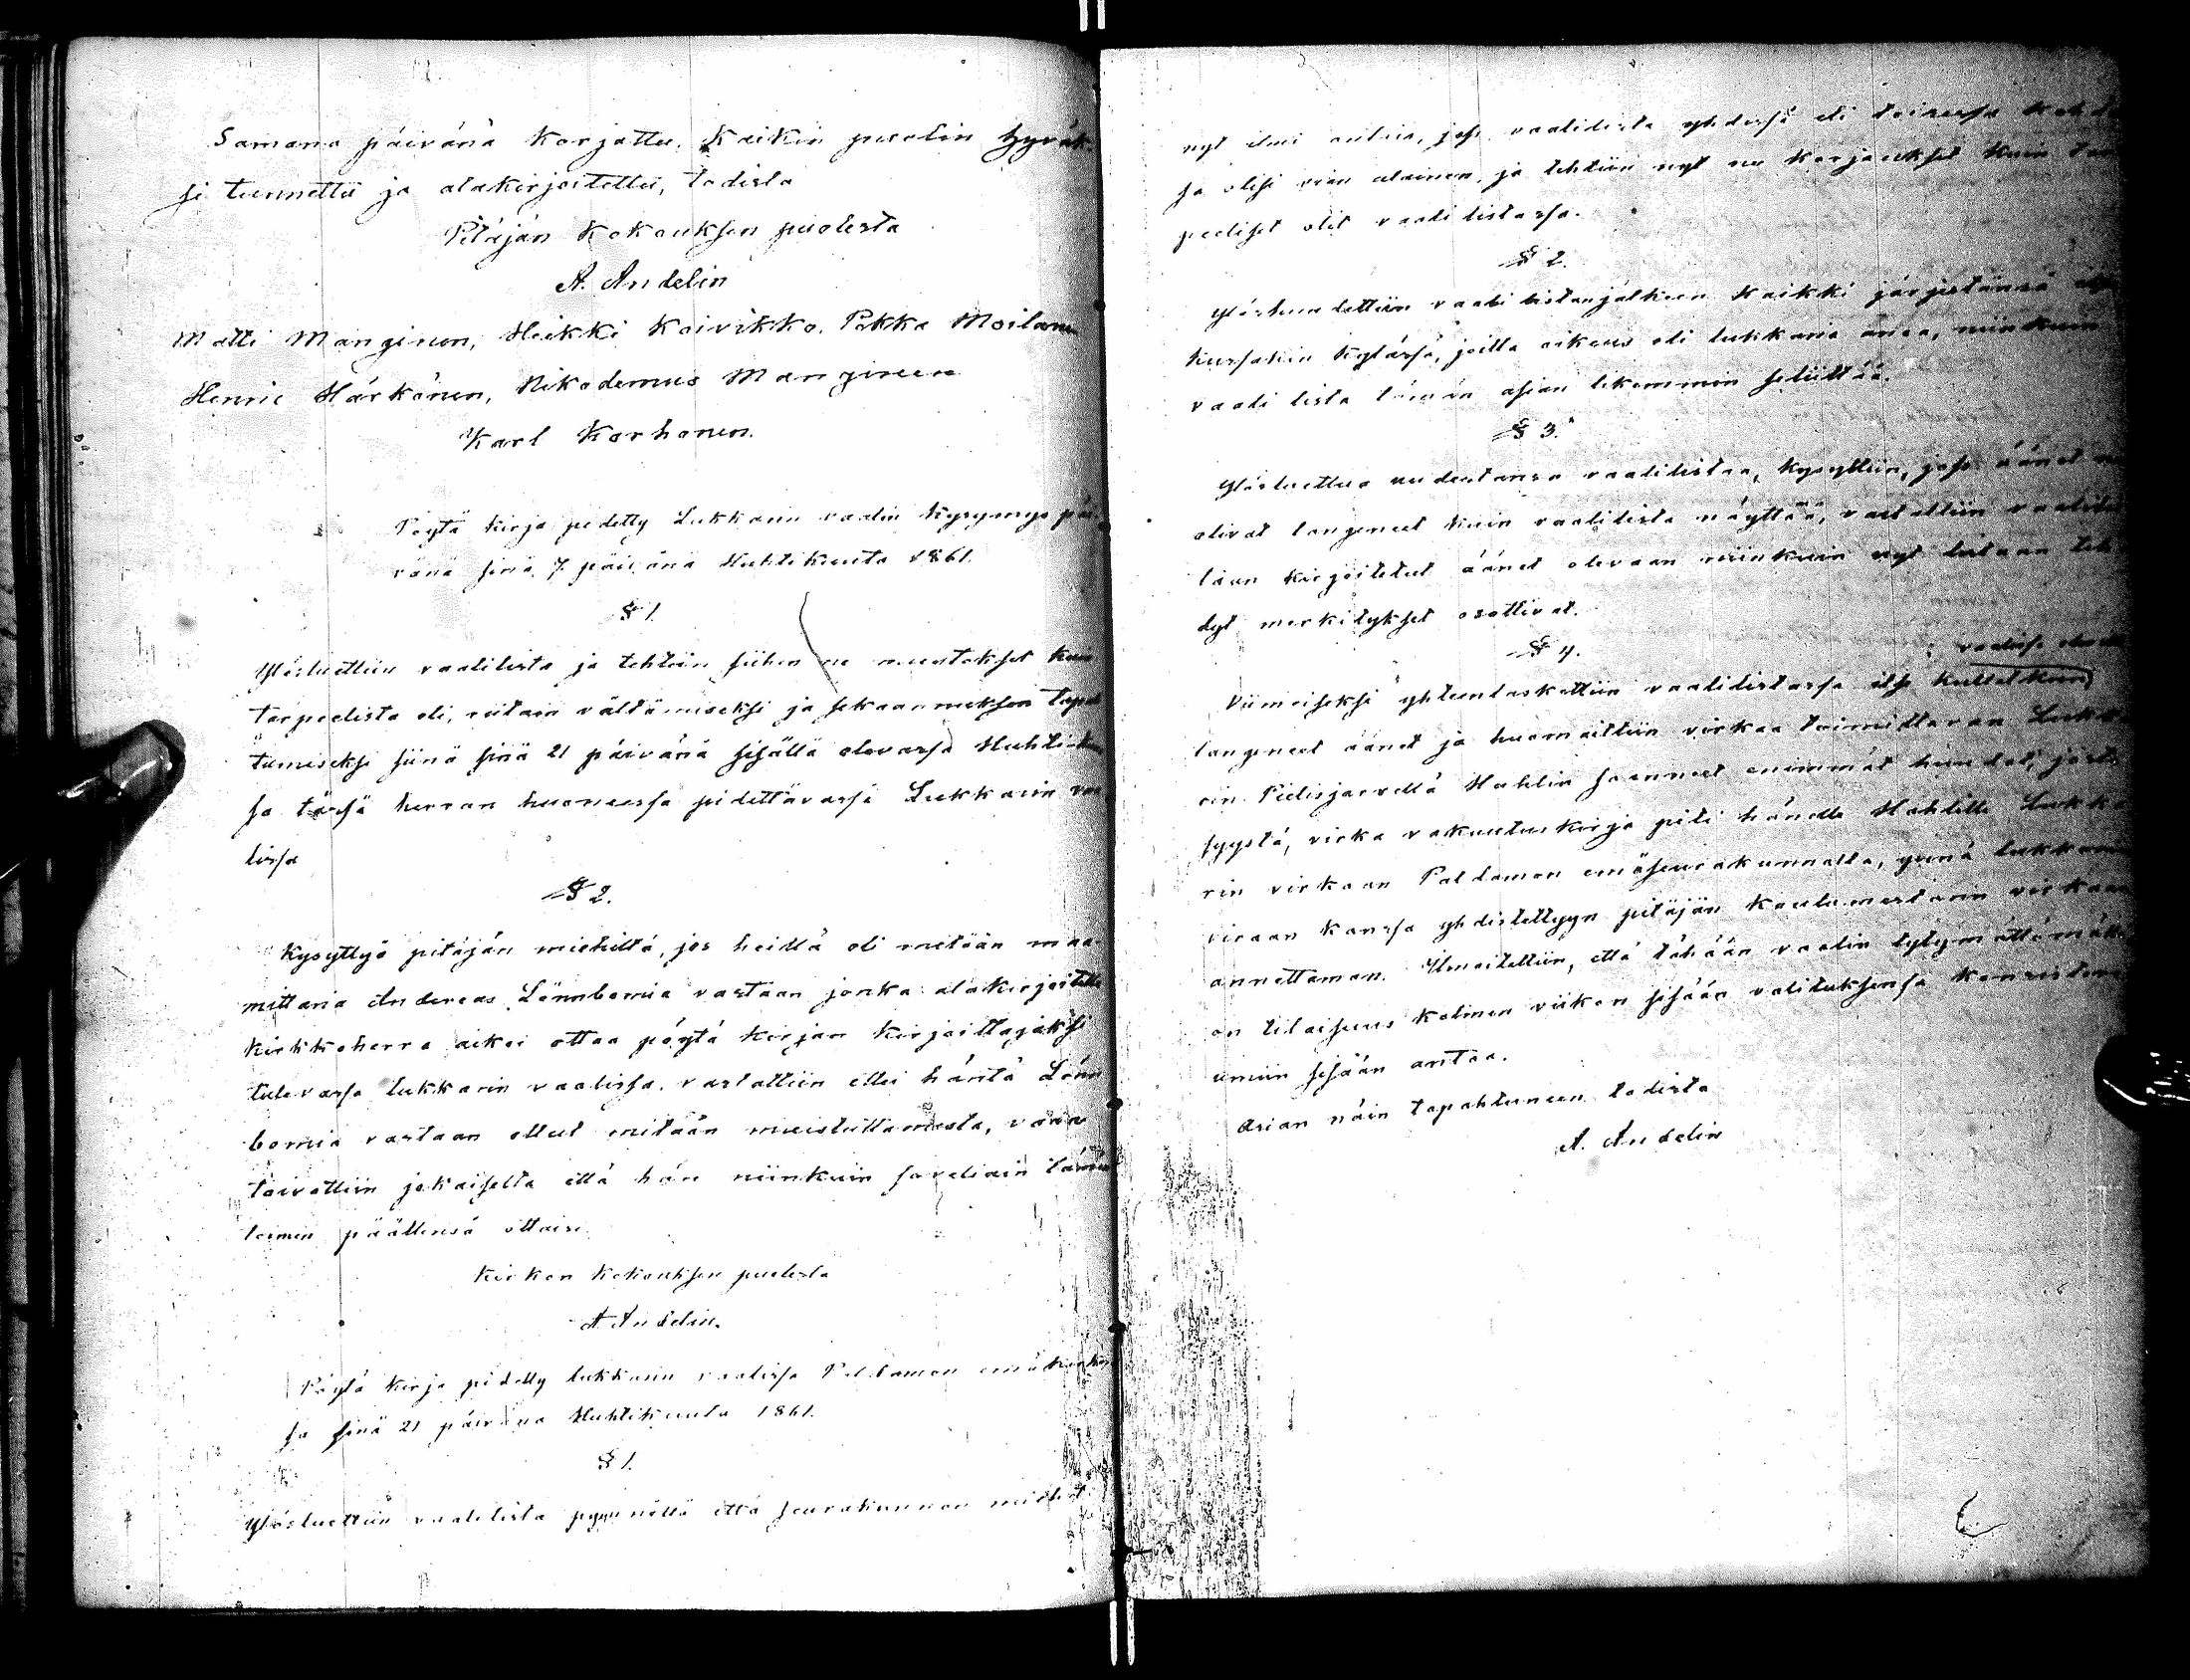 Samana päivänä korjattu, kaikin puolin hyväk-
si tunnettu ja alakirjoitettu, todista
Pitäjän kokouksen puolesta
A. Andelin
Matti Manginen, Heikki Koivikko, Pekka Moilanen
Henric Härkönen, Nikodemus Manginen
Karl Korhonen.
Pöytä kirja pidetty Lukkarin vaalin kysymys päi-
vänä sinä 7 päivänä Huhtikuuta 1861.
§ 1.
Ylösluettiin vaalilista ja tehtiin siihen ne muutokset kuin
tarpeelista oli, riitain välttämiseksi ja sekaannuksen tapah
tumiseksi siinä sinä 21 päivänä sisällä olevassa Huhtikuu
sa tässä herran huoneessa pidettävässä Lukkarin vaa
lissa
§ 2.
Kysyttyä pitäjän miehiltä, jos heillä oli mitään maa-
mittaria Andereas Lönnbomia vastaan jonka alakirjoitettu
kirkkoherra aikoi ottaa pöytä kirjan kirjoittajaksi
tulevassa lukkarin vaalissa, vastattiin ettei häntä Lönn
bomia vastaan ollut mitään muistuttamista, vaan
toivottiin jokaiselta että hän niinkuin saveliain tämän
toimen päällensä ottaisi.
Kirkon kokouksen puolesta
A. Andelin.
Pöytä kirja pidetty lukkarin vaalissa Paldamon emäkirkos
sa sinä 21 päivänä Huhtikuuta 1861.
§ 1.
Ylösluettiin vaalilista pyynnöllä että seurakunnan miehet
nyt ilmi antaisi, jos vaalilista yhdessä eli toisessa kohda
sa olisi vian alainen, ja tehtiin nyt ne korjaukset kuin tar
peeliset olit vaalilistassa.
§ 2.
Ylöshuudettiin vaali listan jälkeen kaikki järjestänsä
kussakin kylässä, joilla oikeus oli lukkaria antaa, niinkuin
vaali lista tämän asian likemmin selittää.
§ 3.
Ylösluettua uudestansa vaalilistaa, kysyttiin, jos äänet
olivat langeneet kuin vaalilista näyttää, vastattiin vaalilis
taan kirjoitetut äänet olevaan niinkuin nyt listaan teh
dyt merkitykset osottivat.
§ 4.
vaalissa
Viimeiseksi yhteenlaskettiin vaalilistassa itse kullekin
langeneet äänet ja huomaittiin virkaa toimittavan Lukka
rin Pielisjärvellä Hahlin saanneet enimmät huudot, josta
syystä, virka vakuutus kirja piti hänelle Hahlille Lukka
rin virkaan Paldamon emäseurakunnalla, ynnä lukkarin
viraan kanssa yhdistettyyn pitäjän koulumestarin virkaan
annettaman. Ilmoitettiin, että tähään vaaliin tytymättömällä
on tilaisuus kolmen viikon sisään valituksensa konsistori
umiin sisään antaa.
Asian näin tapahtuneen todista
A. Andelin